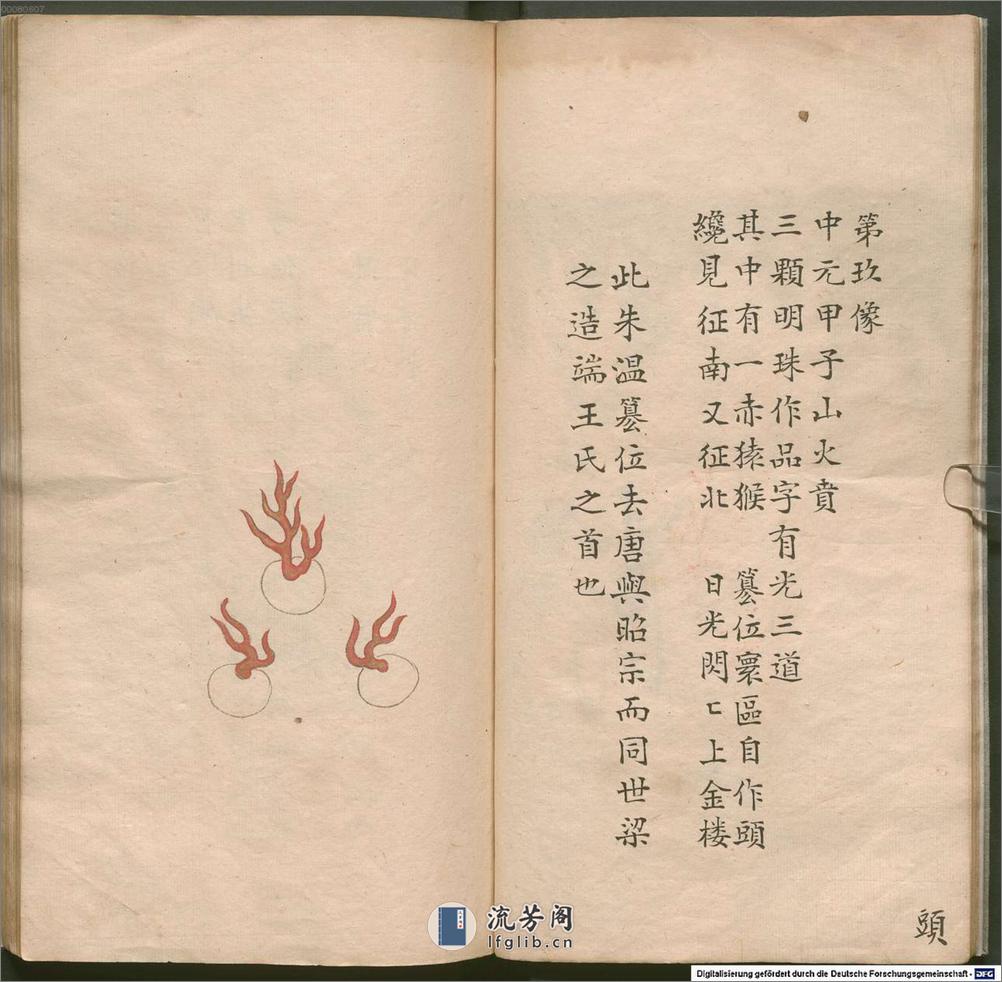 第玖像
中元甲子山火賁
三顆明珠作品字有光三道
其中有一赤猿猴　篡位寰區自作頭
纔見征南又征北　日光閃〻上金楼
此朱温篡位去唐與昭宗而同世梁
之造端王氏之首也
頭
00080607
流芳阁
lfglib.cn
Digitalisierung gefördert durch die Deutsche Forschungsgemeinschaft - DFG